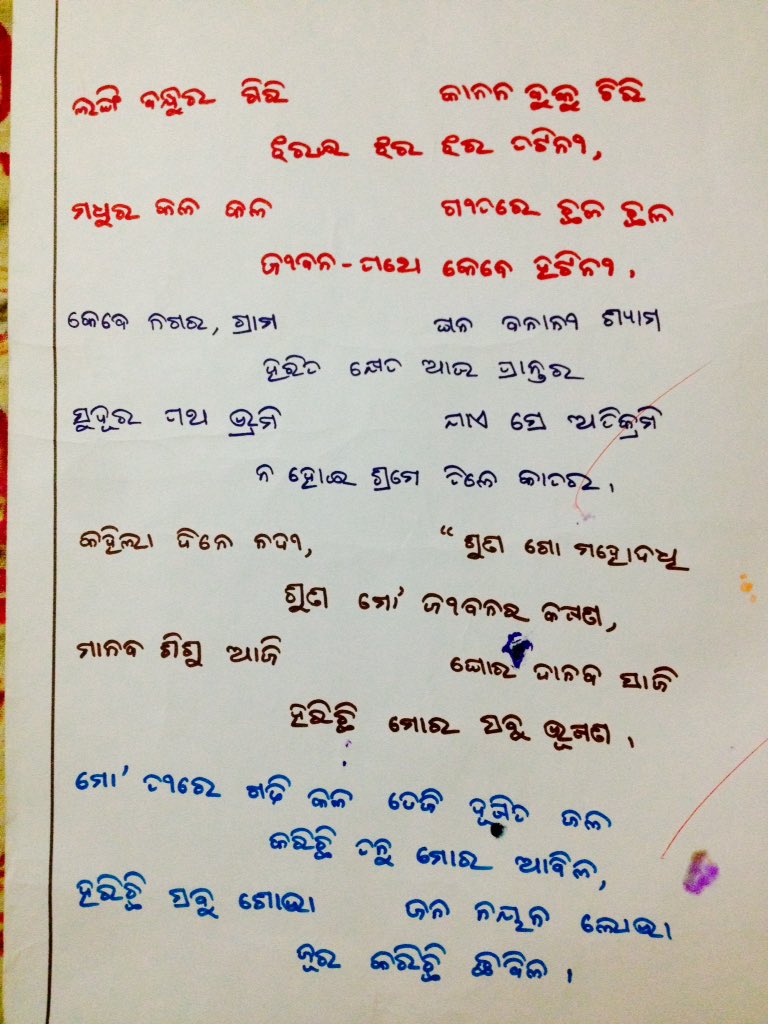 ଲଙ୍ଘି ବନ୍ଧୁର ଗିରି କାନନ ବୁକୁ ଚିରି
ଝିରଇ ଝର ଝର ତଟିନୀ,
ମଧୁର କଳ କଳ ଗୀତରେ ଛଳ ଛଳ
ଜୀବନ-ପଥେ କେବେ ହଟିନୀ ।
କେବେ ନଗର, ଗ୍ରାମ ଘନ ବନାନୀ ଶ୍ୟାମ
ହରିତ କ୍ଷେତ ଆଉ ପ୍ରାନ୍ତର
ସୁଦୂର ପଥ ଭ୍ରମି ଯାଏ ସେ ଅତିକ୍ରମି
ନ ହୋଇ ଶ୍ରମେ ତିଳେ କାତର ।
କହିଲା ଦିନେ ନଦୀ, "ଶୁଣ ଗୋ ମହୋଦଧି
ଶୁଣ ମୋ' ଜୀବନର କଷଣ,
ମାନବ ଶିଶୁ ଆଜି ଘୋର ଦାନବ ସାଜି
ହରିଛି ମୋର ସବୁ ଭୂଷଣ ।
ମୋ' ତୀରେ ଗଢ଼ି କଳ ତେଜି ଦୂଷିତ ଜଳ
କରିଛି ତନୁ ମୋର ଆବିଳ,
ହରିଛି ସବୁ ଶୋଭା ଜନ ନୟନ ଲୋଭା
କରିଛି